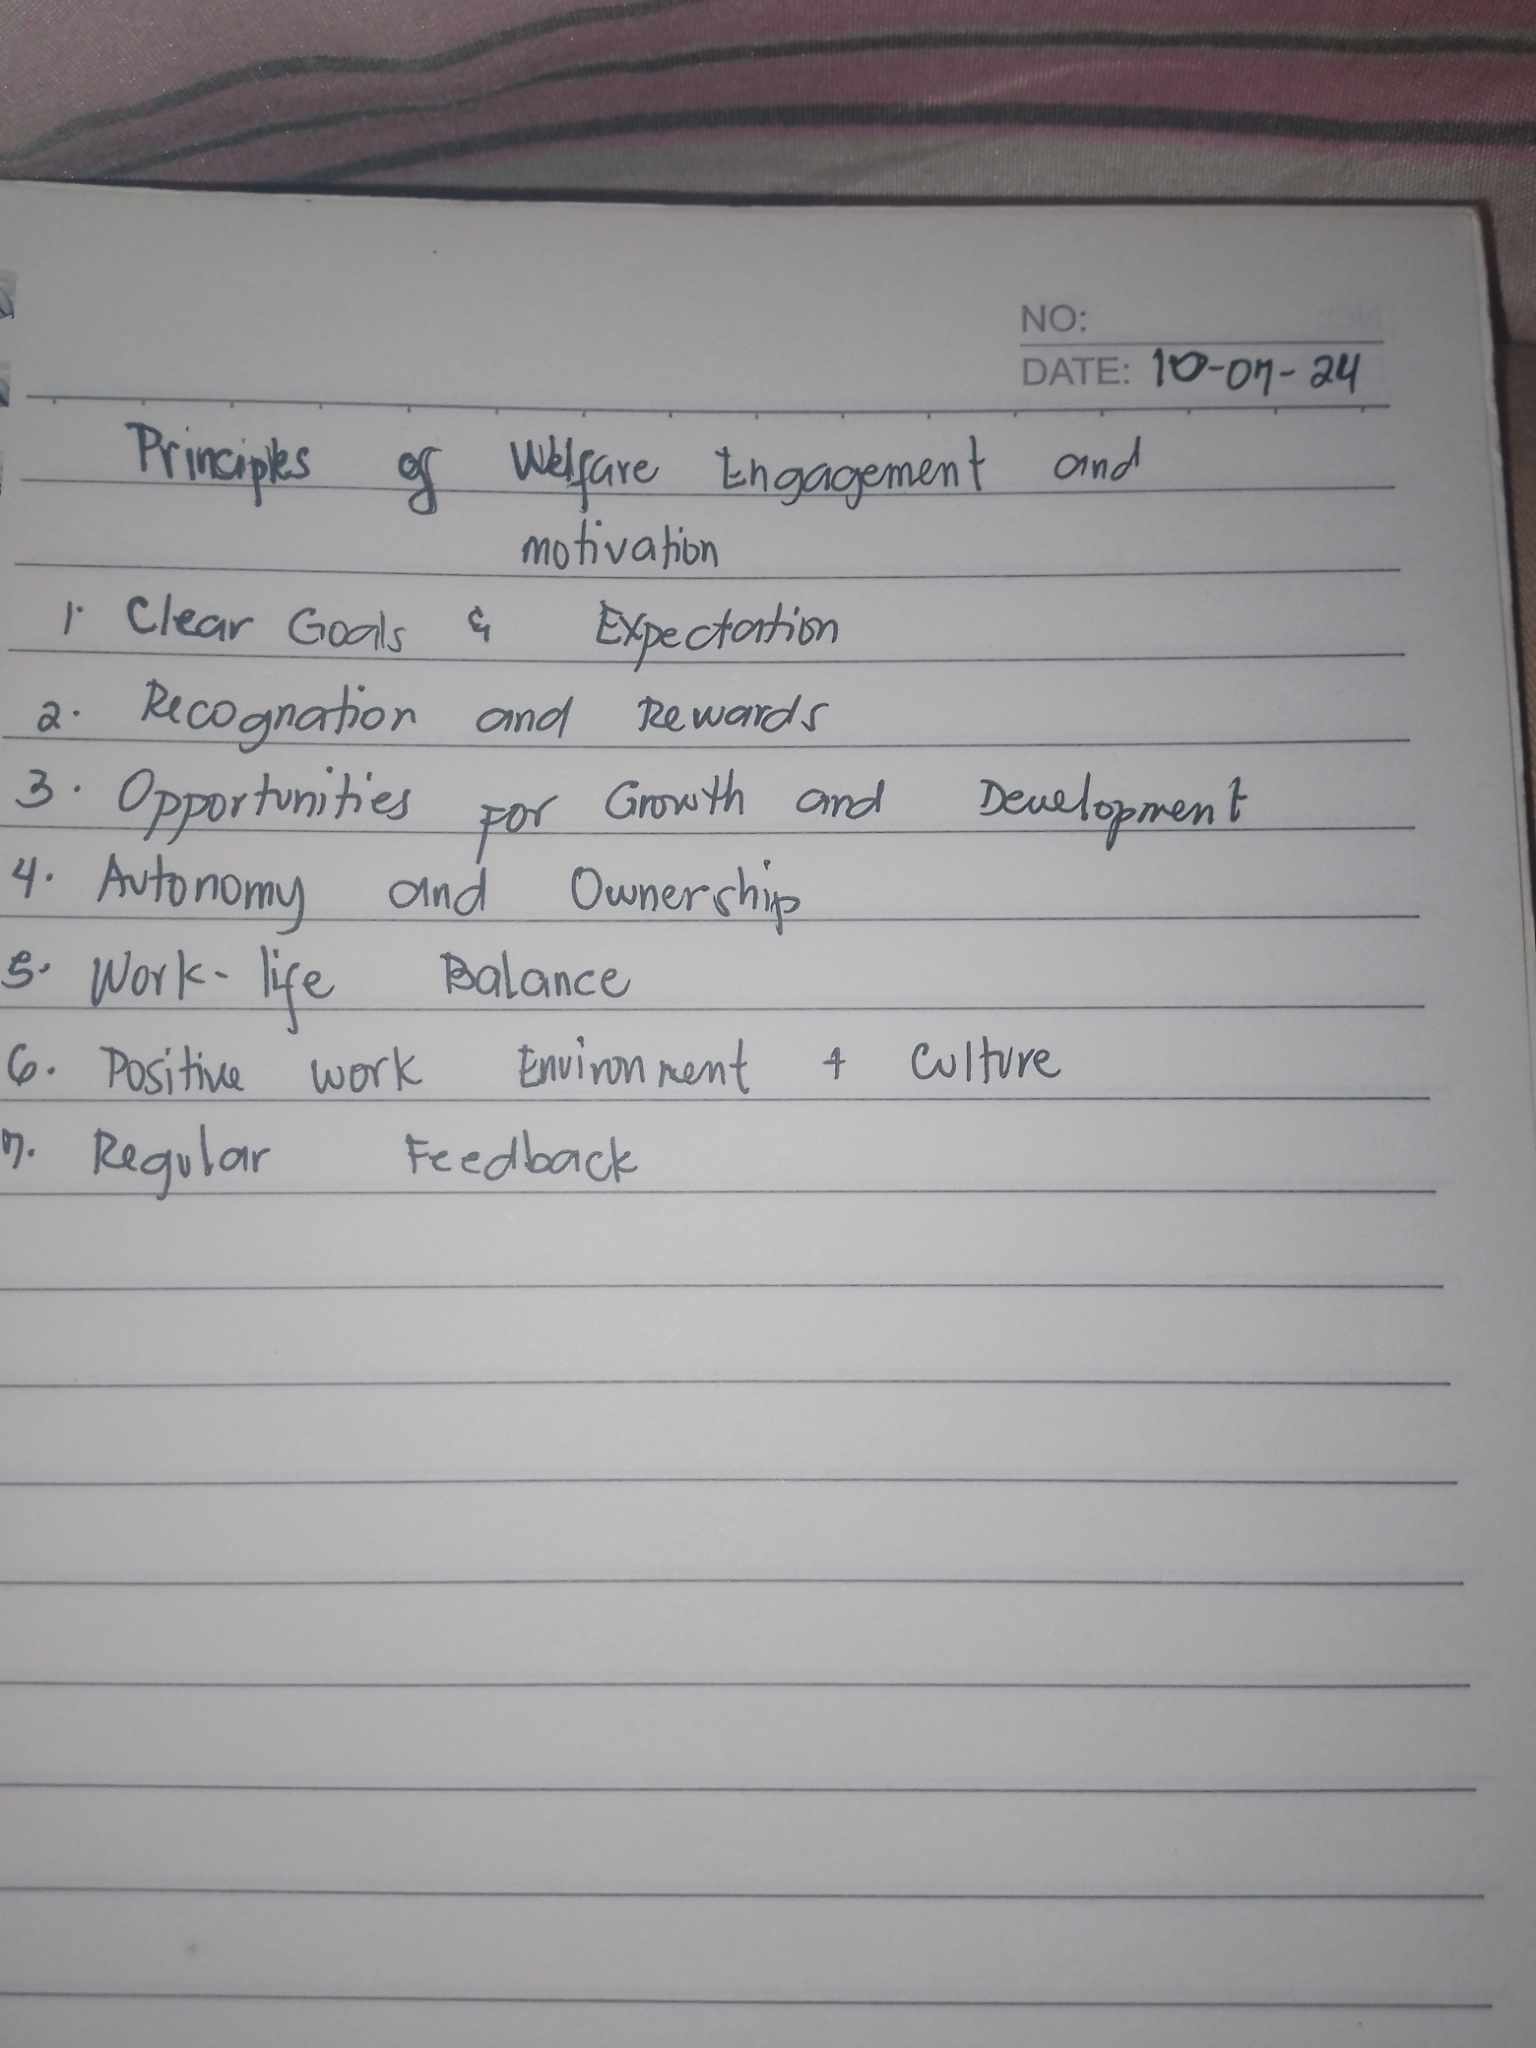 NO:
DATE: 10-07-24
Principles of Welfare Engagement and
motivation
1. Clear Goals & Expectation
2. Recognation and Rewards
3. Opportunities For Growth and Development
4. Autonomy and Ownership
5. Work-life Balance
6. Positive work Environment & Culture
7. Regular Feedback